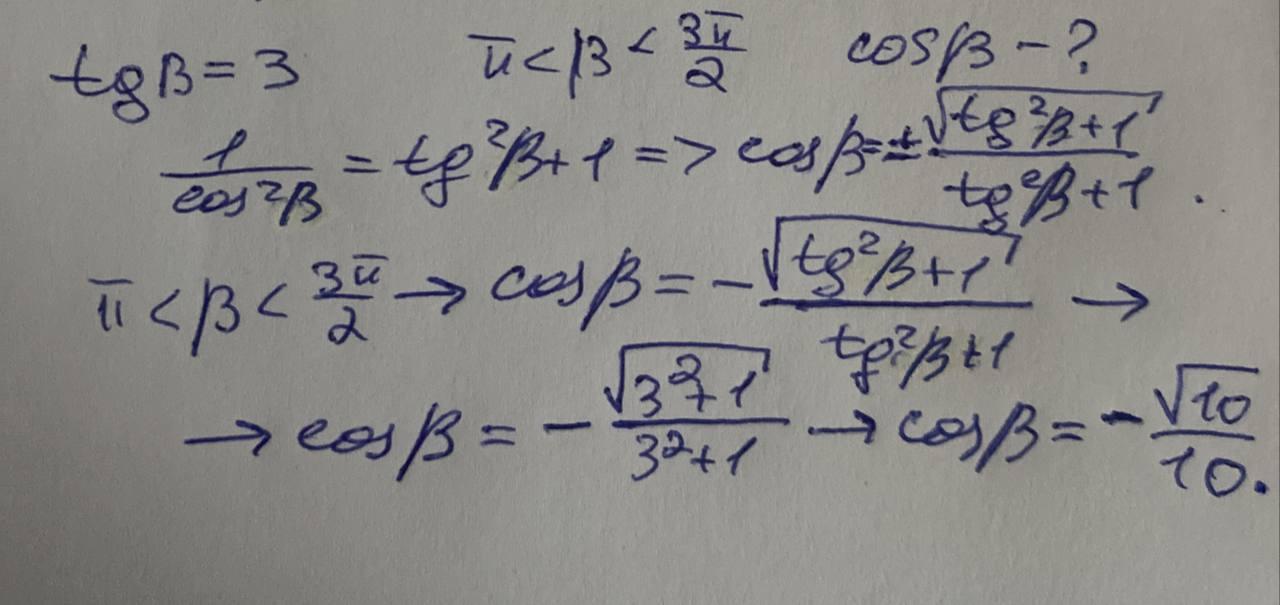 tgβ = 3 π < β < 3π/2 cosβ - ?
1/cos²β = tg²β + 1 => cosβ = ± √(tg²β + 1)/(tg²β + 1) .
π < β < 3π/2 → cosβ = - √(tg²β + 1)/(tg²β + 1) →
→ cosβ = - √(3² + 1)/(3² + 1) → cosβ = - √10/10.